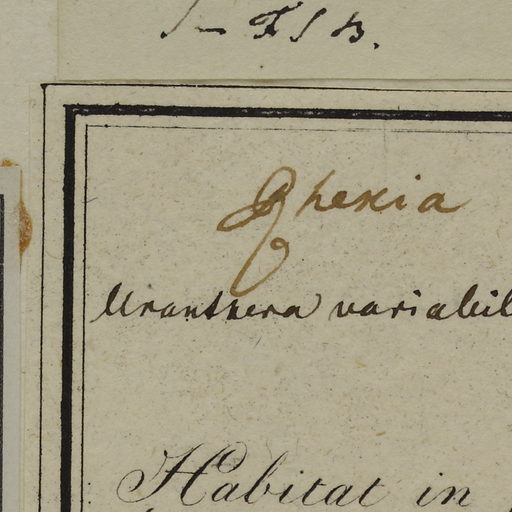 Rhexia
Uranthera variabil
Habitat in